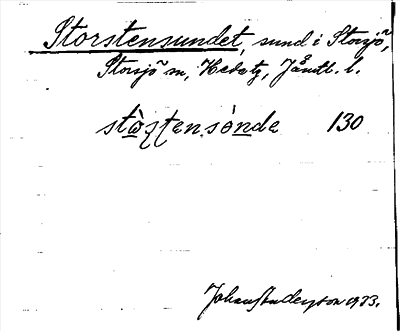 Storstensundet, sund i Storsjö,
Storsjö sn, Hede tg, Jämtl. l.
stò̱ʂʈen.sònde 130
Johan Anderson 1933.